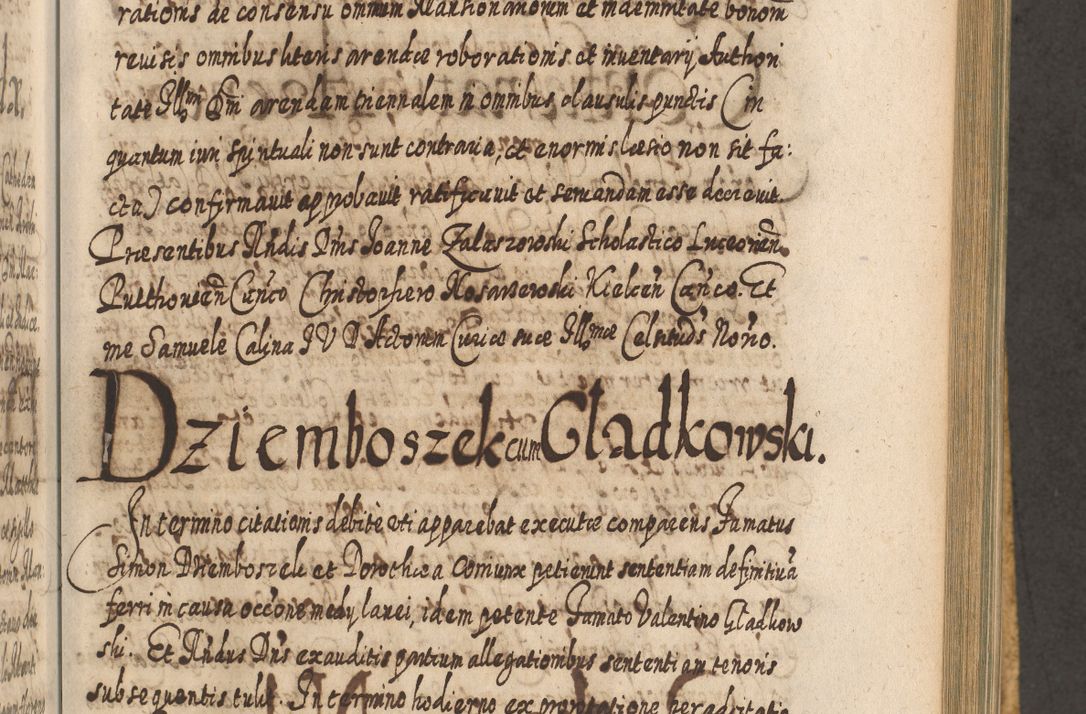 rationis de consensu omnium Mansionariorum et indemnitate bonorum
revisis omnibus literis arendæ roborationis et inventarij Authori
tate Illmi Dni arendam triennalem in omnibus clausulis punctis (in
quantum iuri spirituali non sunt contraria, et enormis læsio non sit fa:
cta) confirmavit approbavit ratificavit et servandam esse decrevit.
Præsentibus Rndis Dnis Joanne Zalaszowski Scholastico Luceorien.
Pulthovien Canco Christophero Kosarzewski Kielcen Canco. Et
me Samuele Calina J V D Actorum Curiæ suæ Illmæ Celsituds Norio.
Dziemboszek cum Gladkowski.
In termino citationis debite uti apparebat executæ comparens Famatus
Simon Dziemboszek et Dorothæa Coniunx petierunt sententiam definitiva
ferri in causa occone medij lanei, idem petente Famato Valentino Gladkow
ski. Et Rndus Dns exauditis partium allegationibus sententiam tenoris
subsequentis tulit. In termino hodierno ex prorogatione per adcitatio